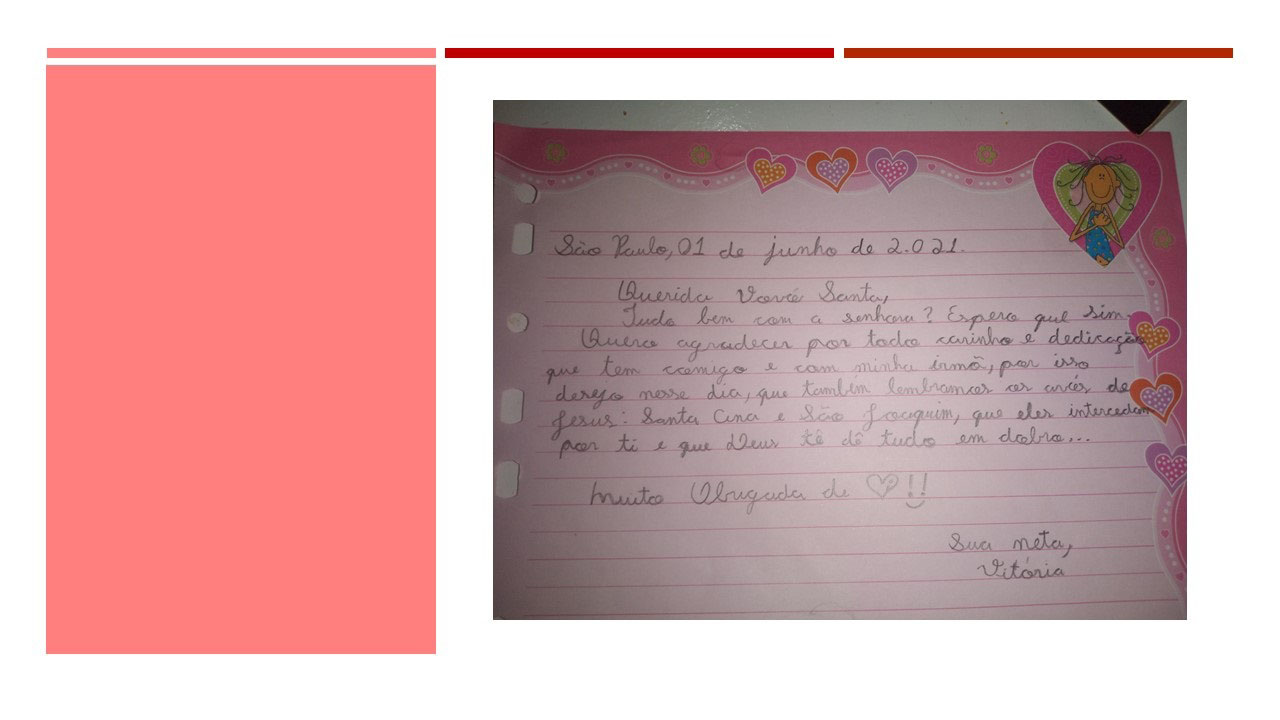 São Paulo, 01 de junho de 2.021.
Querida Vovó Santa,
Tudo bem com a senhora? Espero que sim.
Quero agradecer por todo carinho e dedicação
que tem comigo e com minha irmã, por isso
desejo nesse dia, que também lembramos os avós de
Jesus: Santa Ana e São Joaquim, que eles intercedam
por ti e que Deus tê dê tudo em dobro...
Muito Obrigada de ♡!!
Sua neta,
Vitória